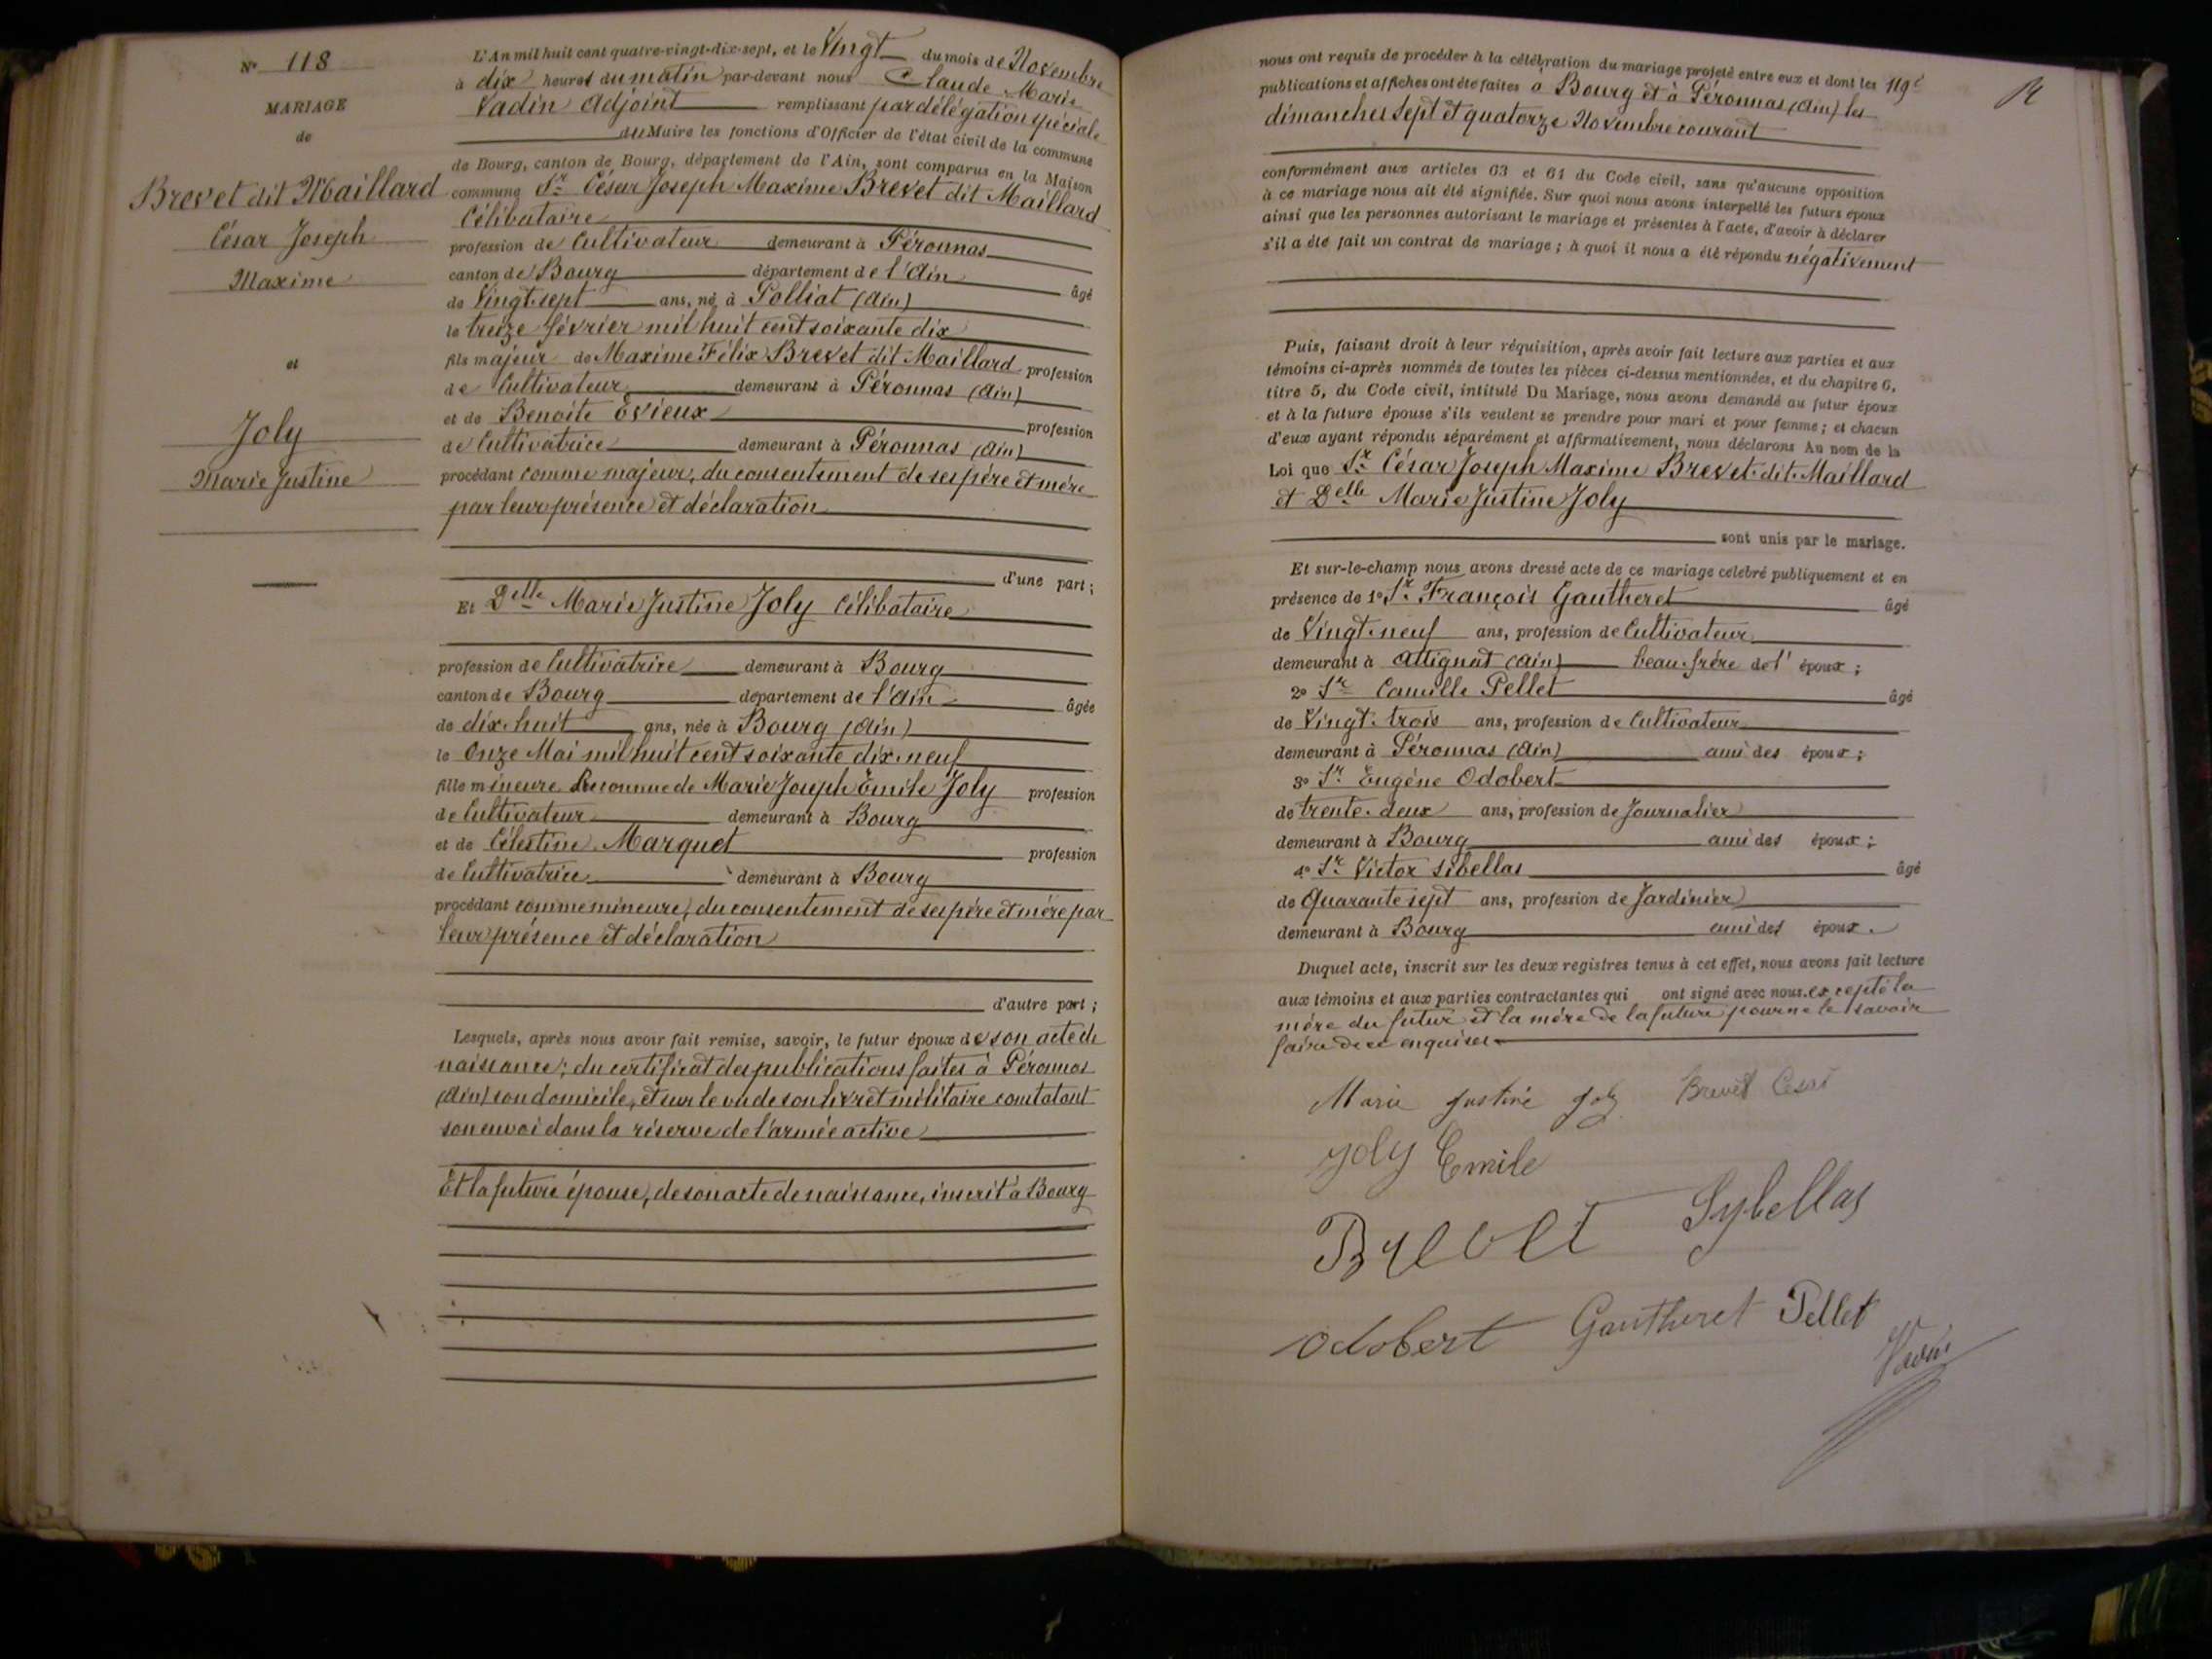 N° 118
MARIAGE
de
Brevet dit Maillard
César Joseph
Maxime
et
Joly
Marie Justine
L'An mil huit cent quatre-vingt-dix-sept, et le Vingt du mois de Novembre
à dix heures du matin par-devant nous Claude Marie
Vadin Adjoint remplissant par délégation spéciale
du Maire les fonctions d'Officier de l'état civil de la commune
de Bourg, canton de Bourg, département de l'Ain, sont comparus en la Maison
commune Sr César Joseph Maxime Brevet dit Maillard
Célibataire
profession de Cultivateur demeurant à Péronnas
canton de Bourg département de l'Ain âgé
de Vingt-sept ans, né à Polliat (Ain)
le treize février mil huit cent soixante dix
fils majeur de Maxime Félix Brevet dit Maillard profession
de Cultivateur demeurant à Péronnas (Ain)
et de Benoite Evieux profession
de Cultivatrice demeurant à Péronnas (Ain)
procédant comme majeur, du consentement de ses père et mère
par leur présence et déclaration
d'une part;
Et Delle Marie Justine Joly Célibataire
profession de Cultivatrice demeurant à Bourg
canton de Bourg département de l'Ain âgée
de dix-huit ans, née à Bourg (Ain)
le Onze Mai mil huit cent soixante dix-neuf
fille mineure Reconnue de Marie Joseph Emile Joly profession
de Cultivateur demeurant à Bourg
et de Célestine Marquet profession
de Cultivatrice demeurant à Bourg
procédant comme mineure, du consentement de ses père et mère par
leur présence et déclaration
d'autre part;
Lesquels, après nous avoir fait remise, savoir, le futur époux de son acte de
naissance; du certificat des publications faites à Péronnas
(Ain) son domicile, et sur le vu de son livret militaire constatant
son envoi dans la réserve de l'armée active
Et la future épouse, de son acte de naissance, inscrit à Bourg
nous ont requis de procéder à la célébration du mariage projeté entre eux et dont les 119e
publications et affiches ont été faites à Bourg et à Péronnas (Ain) les
dimanches sept et quatorze Novembre courant
conformément aux articles 63 et 64 du Code civil, sans qu'aucune opposition
à ce mariage nous ait été signifiée. Sur quoi nous avons interpellé les futurs époux
ainsi que les personnes autorisant le mariage et présentes à l'acte, d'avoir à déclarer
s'il a été fait un contrat de mariage; à quoi il nous a été répondu négativement
Puis, faisant droit à leur réquisition, après avoir fait lecture aux parties et aux
témoins ci-après nommés de toutes les pièces ci-dessus mentionnées, et du chapitre 6,
titre 5, du Code civil, intitulé Du Mariage, nous avons demandé au futur époux
et à la future épouse s'ils veulent se prendre pour mari et pour femme; et chacun
d'eux ayant répondu séparément et affirmativement, nous déclarons Au nom de la
Loi que Sr César Joseph Maxime Brevet dit Maillard
et Delle Marie Justine Joly
sont unis par le mariage.
Et sur-le-champ nous avons dressé acte de ce mariage célébré publiquement et en
présence de 1° Sr François Gautheret âgé
de Vingt-neuf ans, profession de Cultivateur
demeurant à Attignat (Ain) beau-frère de l'époux;
2° Sr Camille Pellet âgé
de Vingt-trois ans, profession de Cultivateur
demeurant à Péronnas (Ain) ami des époux;
3° Sr Eugène Odobert
de trente-deux ans, profession de Journalier
demeurant à Bourg ami des époux;
4° Sr Victor Sibellas âgé
de Quarante sept ans, profession de Jardinier
demeurant à Bourg ami des époux.
Duquel acte, inscrit sur les deux registres tenus à cet effet, nous avons fait lecture
aux témoins et aux parties contractantes qui ont signé avec nous. excepté la
mère du futur et la mère de la future pour ne le savoir
faire de ce enquises
Marie Justine Joly Brevet César
Joly Emile
Brevet Sybellas
Odobert Gautheret Pellet
Vadin